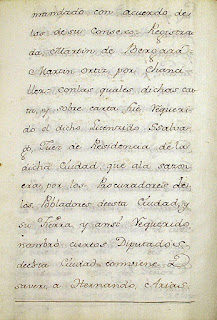 mandado con acuerdo, de
los de su Consexo: Registra
da, Martin de Bergara=
Martin ortiz, por Chanci
ller: con las quales dichas car
ta, y sobre carta fué requeri
do el dicho Licenciado Esalva
, Juez de Residencia de la
dicha Ciudad, que ala sazon
era por los Procuradores de
los Pobladores de esta Ciudad, y
su Tierra, y ansi requerido
nombró ciertos Diputados
de esta Ciudad, combiene á
saver: a Hernando, Arias